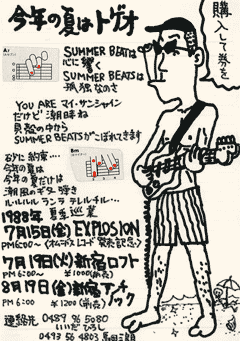 今年の夏はトゲオ
購入して券を
A7
SUMMER BEATSは
心に響く
SUMMER BEATSは
孤独なのさ
YOU ARE マイ・サンシャイン
だけど 潮時ね
貝殻の中から
SUMMER BEATSがこぼれてきます
Bm
今年の夏は
今年の夏だけは
潮風のギター弾き
ルルルル ランラ ラレルチル…
1988年 夏季巡業
7月15日(金) EXPLOSION
PM6:00〜
7月19日(火) 新宿ロフト
PM 6:00〜 ¥1000(前売)
8月19日(金) 新宿アンチノック
PM 6:00 ¥1200(前売)
連絡先 0489 96 5080
いいだひろし
0493 56 4803